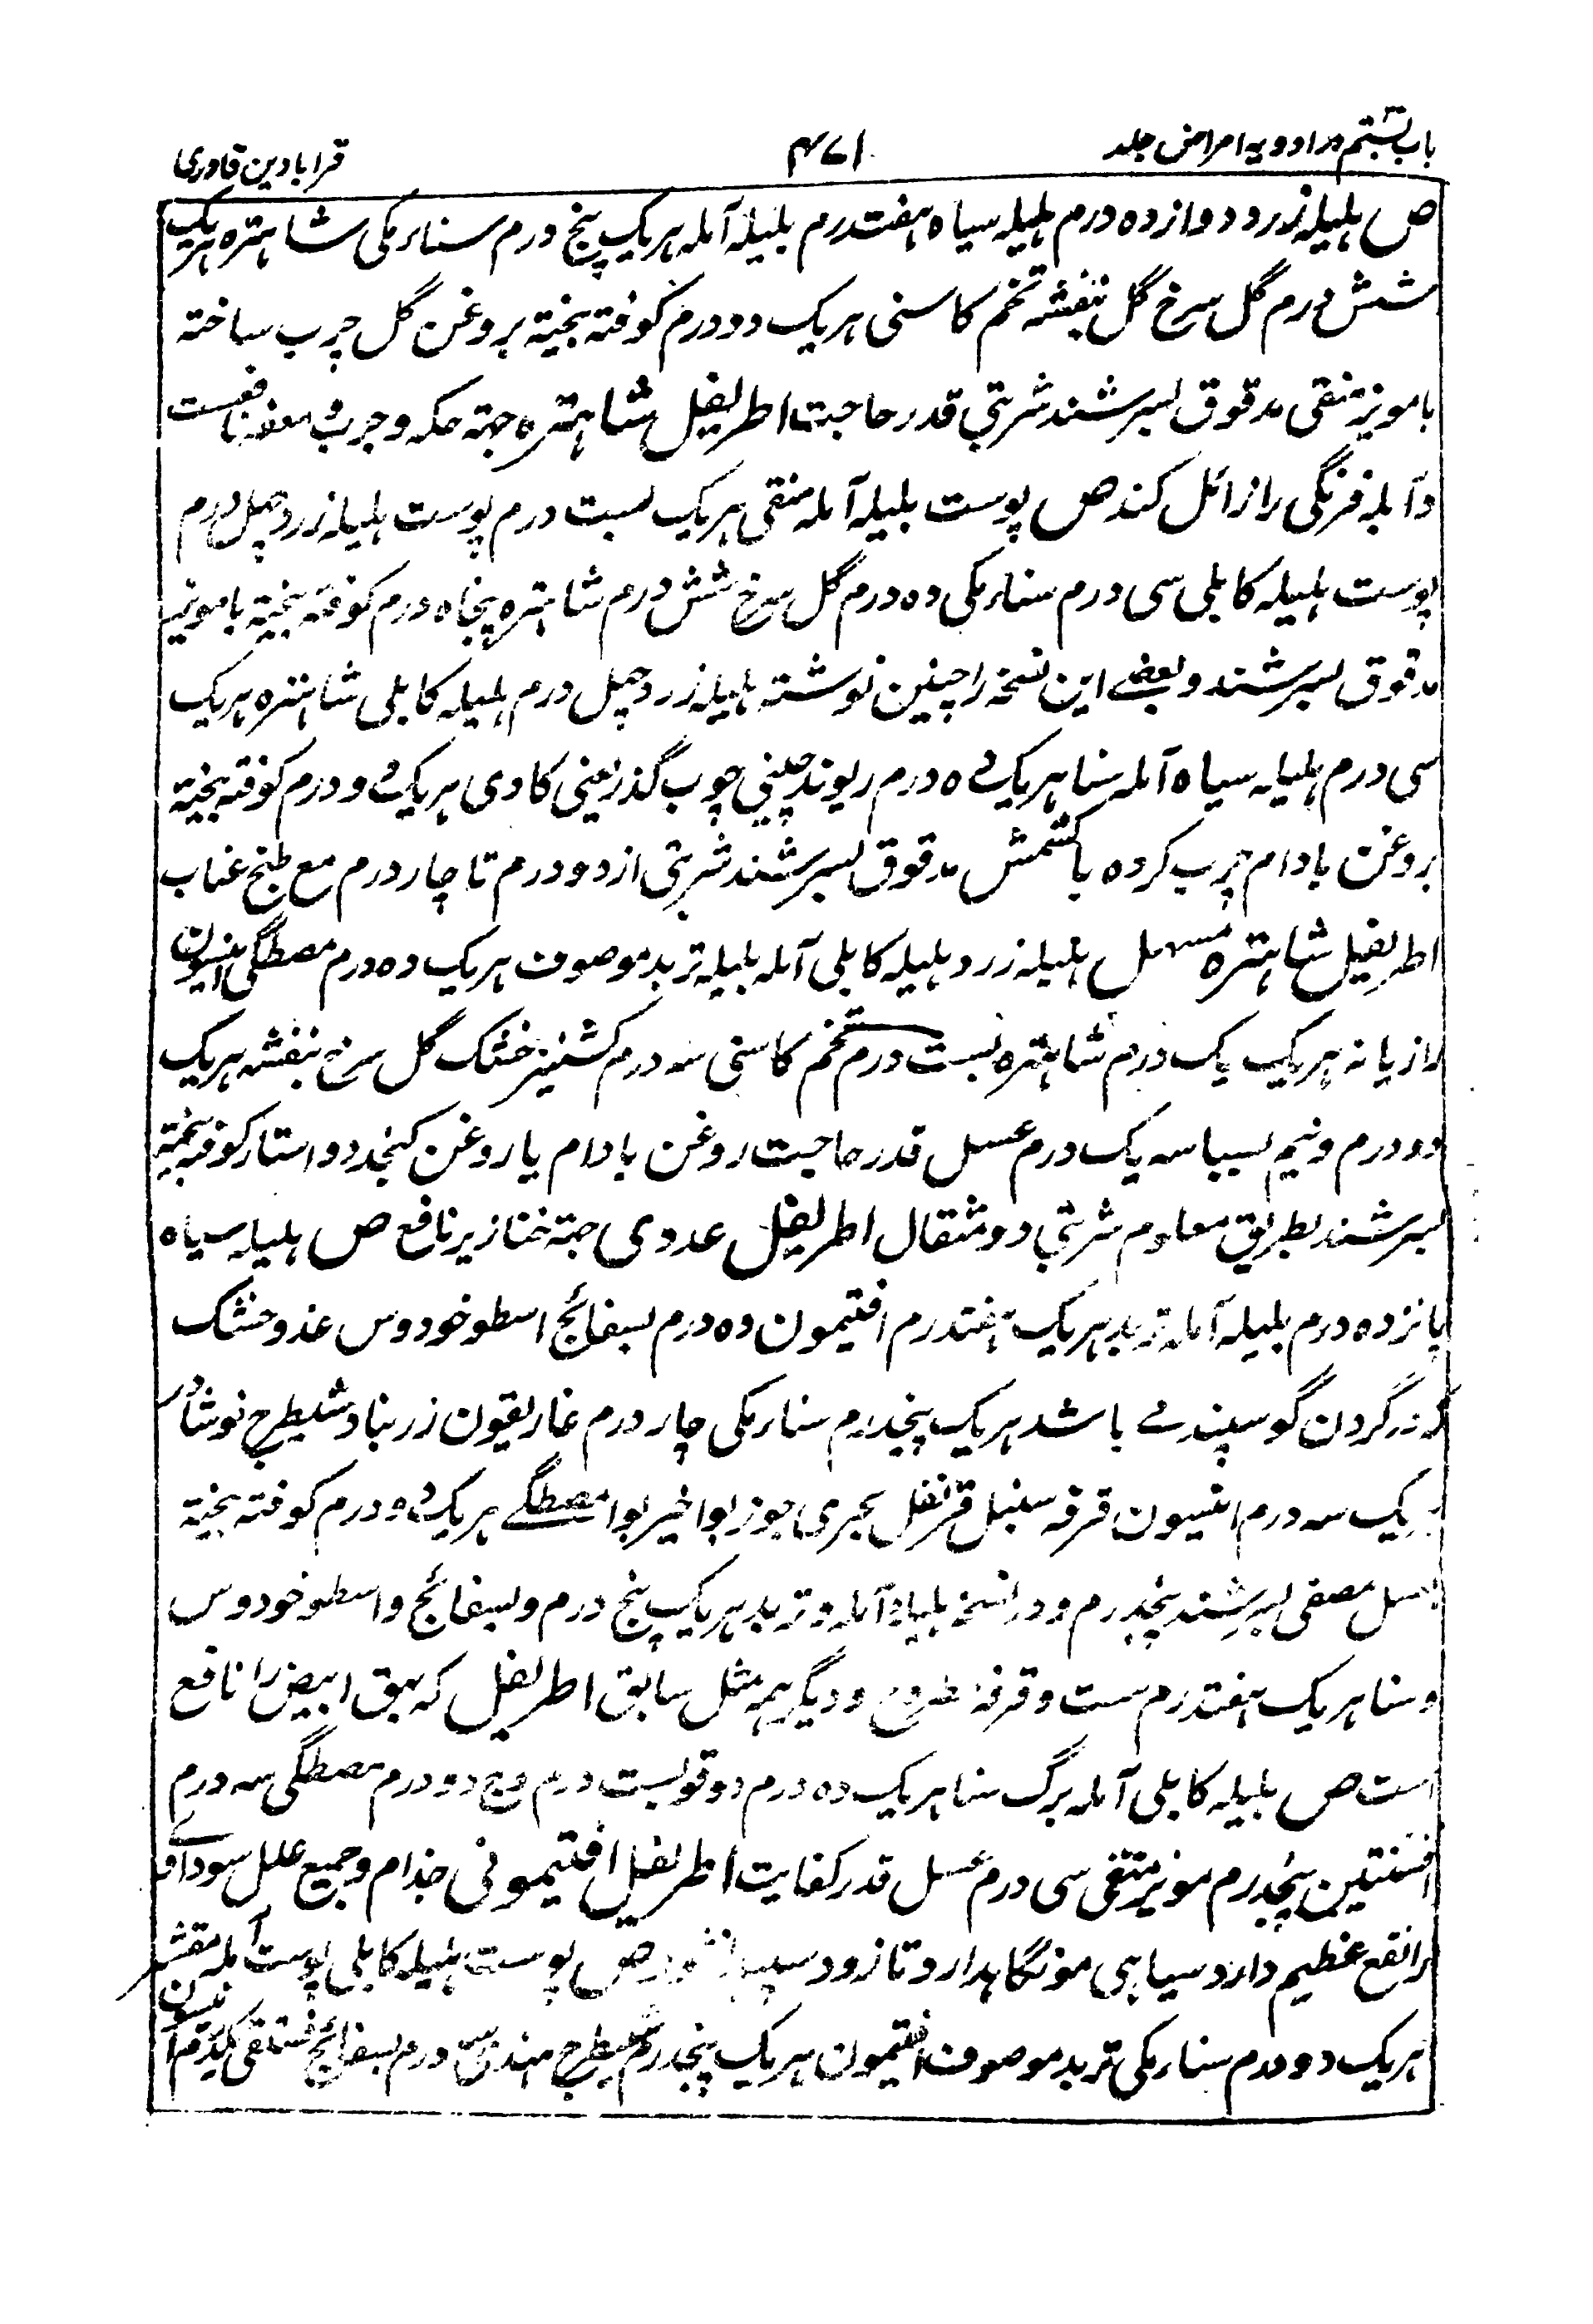 باب بستم در ادویه امراض جلد ۴۷۱ قرابادین قادری
ص ہلیلہ زرد دوازده درم ہلیلہ سیاہ ہفتدرم بلیلہ آملہ ہریک پنج درم سناء مکی شاہترہ ہریک
شش درم گل سرخ گل بنفشہ تخم کاسنی ہریک دو درم کوفتہ بیختہ بروغن گل چرب ساختہ
با مویز منقی مدقوق بسرشند شربتی قدر حاجت اطریفل شاہترہ جہتہ حکہ و جرب نافعست
و آبلہ فرنگی را زائل کند ص پوست بلیلہ آملہ منقی ہریک بست درم پوست ہلیلہ زرد چہل درم
پوست ہلیلہ کابلی سی درم سناء مکی ده درم گل سرخ شش درم شاہترہ پنجاه درم کوفتہ بیختہ با مویز
مدقوق بسرشند و بعضے این نسخہ را چنین نوشتہ ہلیلہ زرد چہل درم ہلیلہ کابلی شاہترہ ہریک
سی درم ہلیلہ سیاہ آملہ سنا ہریک ده درم ریوند چینی چوب گذر یعنی کادی ہریک دو درم کوفتہ بیختہ
بروغن بادام چرب کرده با کشمش مدقوق بسرشند شربتی از دو درم تا چار درم مع طبخ عناب
اطریفل شاہترہ مسہل ہلیلہ زرد ہلیلہ کابلی آملہ بلیلہ تربد موصوف ہریک ده درم مصطگی انیسون
رازیانہ ہریک یک درم شاہترہ بست درم تخم کاسنی سہ درم کشنیز خشک گل سرخ بنفشہ ہریک
دو درم و نیم بسباسہ یک درم عسل قدر حاجت روغن بادام یا روغن کنجد دو استار کوفتہ بیختہ
بسرشند بطریق معلوم شربتی دو مثقال اطریفل غددی جہتہ خنازیر نافع ص ہلیلہ سیاہ
پانزده درم بلیلہ آملہ تربد ہریک ہفتدرم افتیمون ده درم بسفائج اسطوخودوس غدو خشک
کہ در گردن گوسپندے باشد ہریک پنجدرم سناء مکی چار درم غاریقون زرنباد شیطرج نوشادر
ہریک سہ درم انیسون قرفہ سنبل قرنفل بحری جوزبوا خیربوا مصطگے ہریک دو درم کوفتہ بیختہ
بعسل مصفی بسرشند پنجدرم و در نسخہ بلیلہ آملہ و تربد ہریک پنج درم و بسفائج و اسطوخودوس
و سنا ہریک ہفتدرم ست و قرفہ مطروح و دیگر ہمہ مثل سابق اطریفل کہ بہق ابیض را نافع
است ص ہلیلہ کابلی آملہ برگ سنا ہریک ده درم دوقو بست درم وج دو درم مصطگی سہ درم
افسنتین پنجدرم مویز منقی سی درم عسل قدر کفایت اطریفل افتیمونی جذام و جمیع علل سوداوے
را نفع عظیم دارد سیاہی مو نگاہدارد تا زود سپید نشود ص پوست ہلیلہ کابلی پوست آملہ مقشر
ہریک دو درم سناء مکی تربد موصوف افتیمون ہریک پنجدرم شیطرج ہندی درم بسفائج فستقی یکدرم انیسون